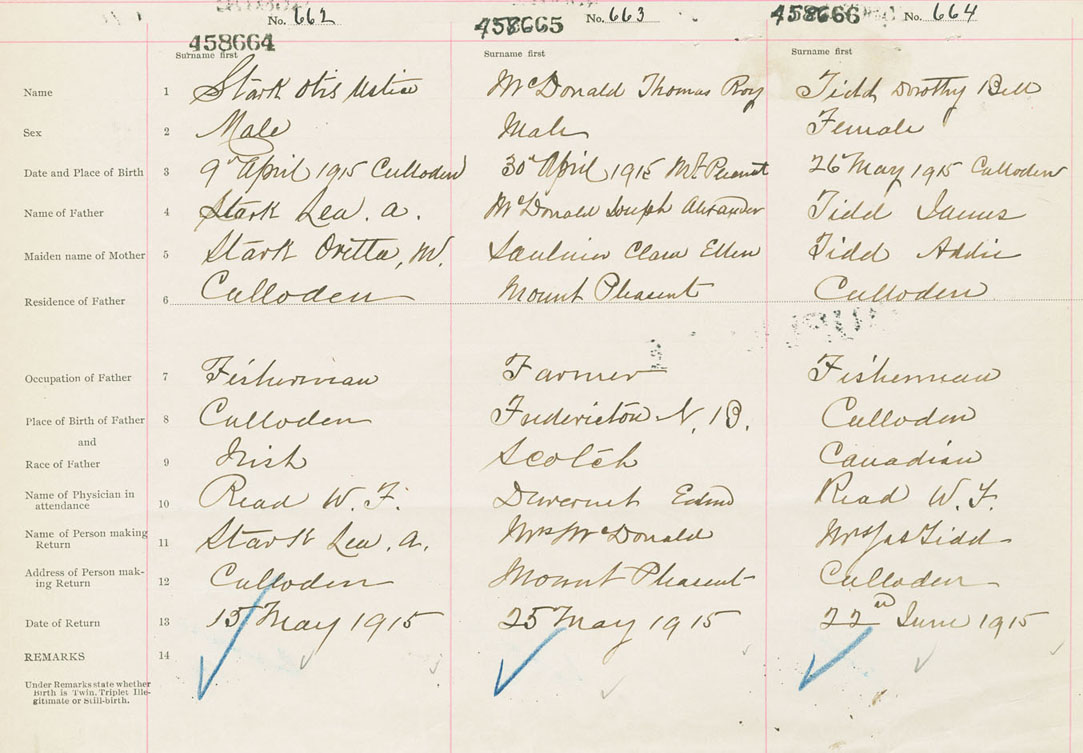 No. 662 No. 663 No. 664
458664 458665 458666
Surname first Surname first Surname first
Name 1 Stark Otis Ustice McDonald Thomas Roy Tidd Dorothy Bell
Sex 2 Male Male Female
Date and Place of Birth 3 9th April 1915 Culloden 30th April 1915 Mt Pleasant 26th May 1915 Culloden
Name of Father 4 Stark Lea. A. McDonald Joseph Alexander Tidd James
Maiden name of Mother 5 Stark Oretta, M. Saulnier Clara Ellen Tidd Addie
Residence of Father 6 Culloden Mount Pleasent Culloden
Occupation of Father 7 Fisherman Farmer Fisherman
Place of Birth of Father 8 Culloden Fredericton N. B. Culloden
and
Race of Father 9 Irish Scotch Canadian
Name of Physician in
attendance 10 Read W. F. Duvernet Edmd Read W. F.
Name of Person making
Return 11 Stark Lea. A. Mrs McDonald Mrs Jas Tidd
Address of Person mak-
ing Return 12 Culloden Mount Pleasent Culloden
Date of Return 13 15 May 1915 25 May 1915 22nd June 1915
REMARKS 14
Under Remarks state whether
Birth is Twin, Triplet Ille-
gitimate or Still-birth.